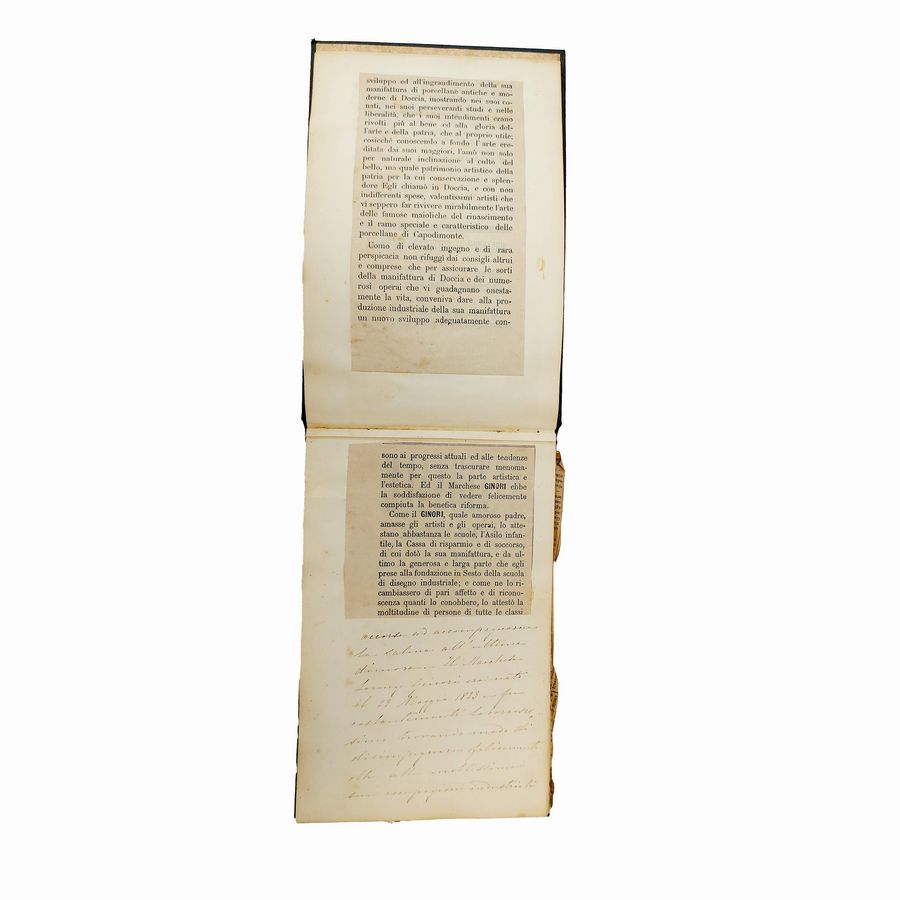 sviluppo ed all'ingrandimento della sua
manifattura di porcellane antiche e mo-
derne di Doccia, mostrando nei suoi co-
nati, nei suoi perseveranti studi e nelle
liberalità, che i suoi intendimenti erano
rivolti più al bene ed alla gloria del-
l'arte e della patria, che al proprio utile;
cosicchè conoscendo a fondo l'arte ere-
ditata dai suoi maggiori, l'amò non solo
per naturale inclinazione al culto del
bello, ma quale patrimonio artistico della
patria per la cui conservazione e splen-
dore Egli chiamò in Doccia, e con non
indifferenti spese, valentissimi artisti che
vi seppero far rivivere mirabilmente l'arte
delle famose maioliche del rinascimento
e il ramo speciale e caratteristico delle
porcellane di Capodimonte.
Uomo di elevato ingegno e di rara
perspicacia non rifuggì dai consigli altrui
e comprese che per assicurare le sorti
della manifattura di Doccia e dei nume-
rosi operai che vi guadagnano onesta-
mente la vita, conveniva dare alla pro-
duzione industriale della sua manifattura
un nuovo sviluppo adeguatamente con-
sono ai progressi attuali ed alle tendenze
del tempo, senza trascurare menoma-
mente per questo la parte artistica e
l'estetica. Ed il Marchese GINORI ebbe
la soddisfazione di vedere felicemente
compiuta la benefica riforma.
Come il GINORI, quale amoroso padre,
amasse gli artisti e gli operai, lo atte-
stano abbastanza le scuole, l'Asilo infan-
tile, la Cassa di risparmio e di soccorso,
di cui dotò la sua manifattura, e da ul-
timo la generosa e larga parte che egli
prese alla fondazione in Sesto della scuola
di disegno industriale; e come ne lo ri-
cambiassero di pari affetto e di ricono-
scenza quanti lo conobbero, lo attestò la
moltitudine di persone di tutte le classi
accorse ad accompagnarne
la salma all'ultima
dimora. Il Marchese
Lorenzo Ginori era nato
il 22 Maggio 1823 e fu
costantemente laborios-
simo trovando modo di
disimpegnare felicemente
oltre alle moltissime
sue industriali